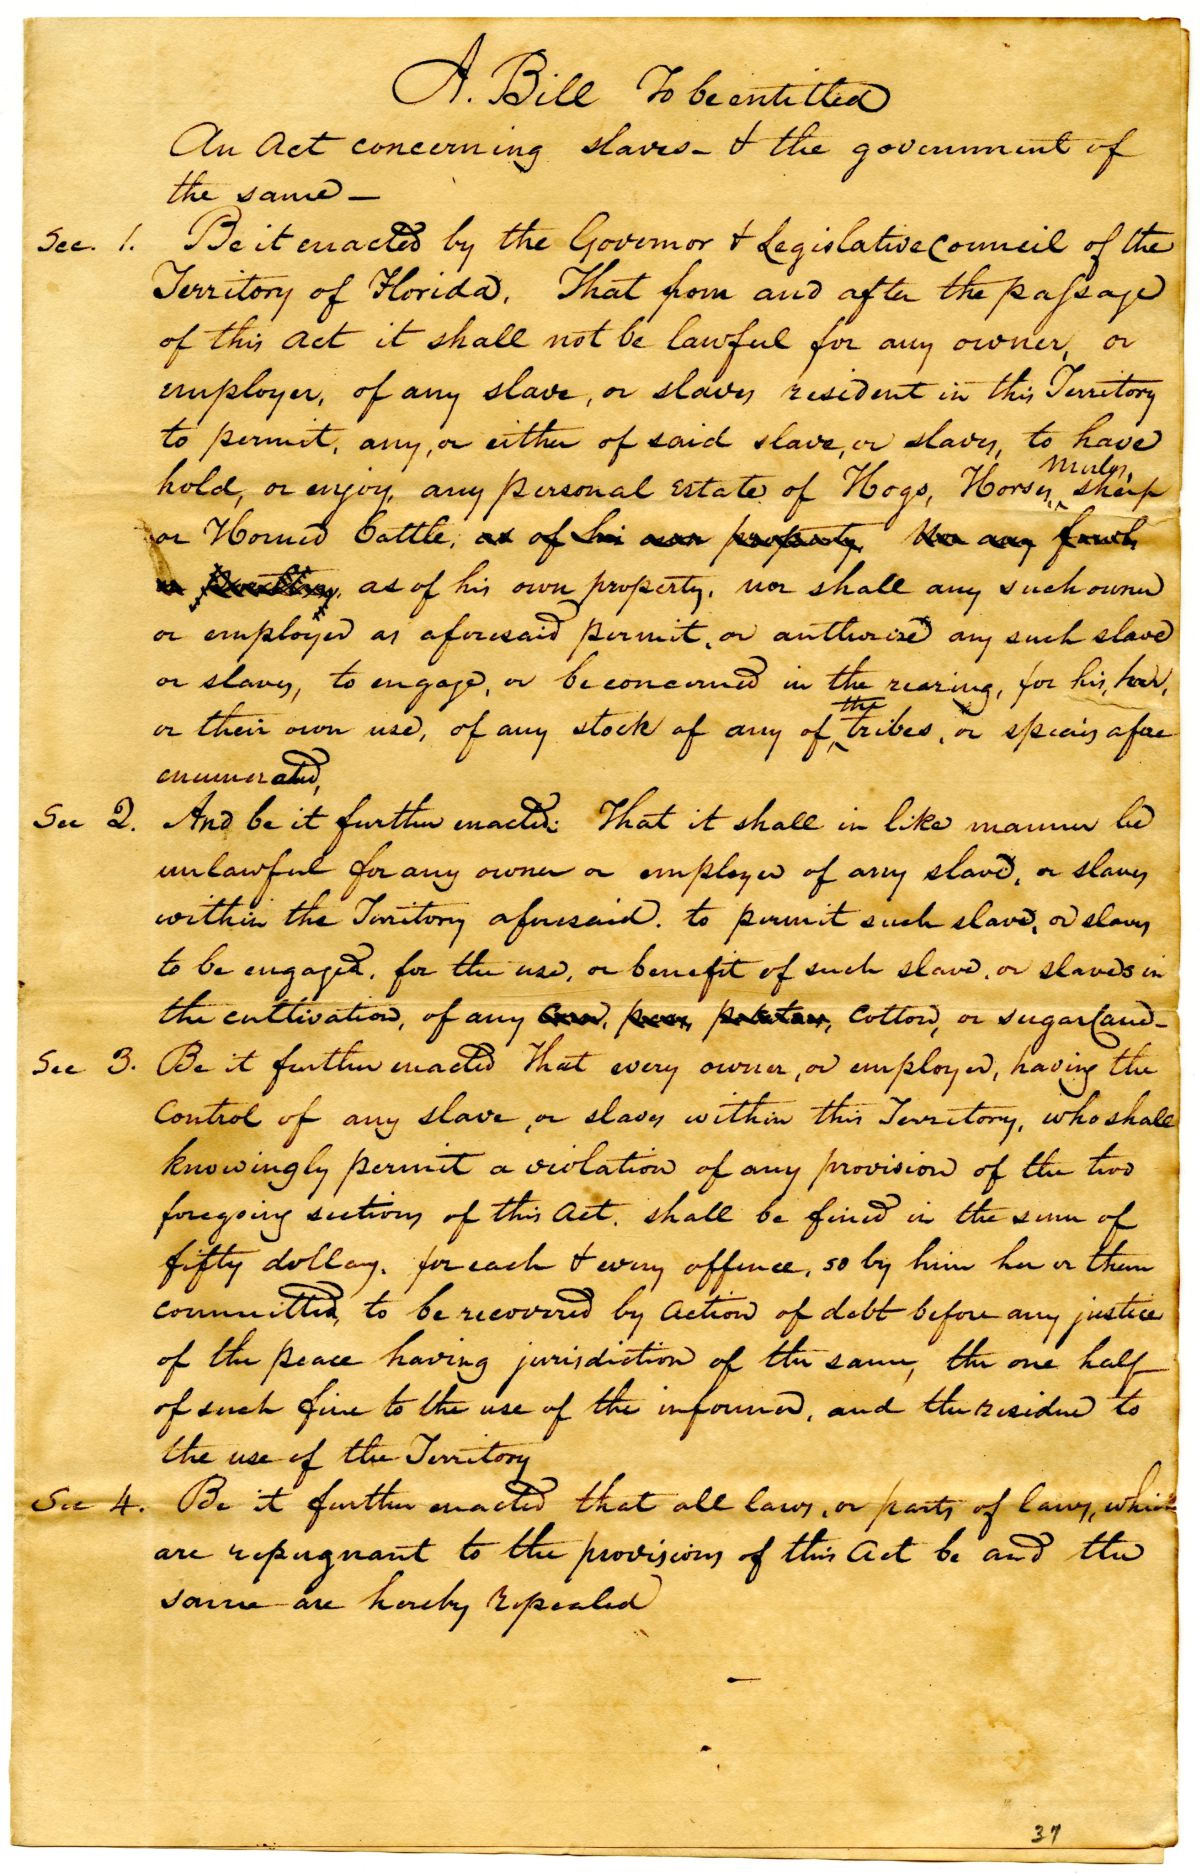 A. Bill To be entitled
An Act concerning slaves - & the government of
the same —
Sec. 1. Be it enacted by the Governor & Legislative Council of the
Territory of Florida, That from and after the passage
of this Act it shall not be lawful for any owner, or
employer, of any slave, or slaves resident in this Territory
to permit, any, or either of said slave, or slaves, to have
Mules,
hold, or enjoy, any personal estate of Hogs, Horses, sheep
or Horned Cattle, as of his own property, Nor any fowls
or Poultry, as of his own property, nor shall any such owner
or employer as aforesaid permit, or authorise any such slave
or slaves, to engage, or be concerned in the rearing, for his, her,
the
or their own use, of any stock of any of tribes, or species afore
enumerated,
Sec 2. And be it further enacted: That it shall in like manner be
unlawful for any owner or employer of any slave, or slaves
within the Territory aforesaid. to permit such slave, or slaves
to be engaged, for the use, or benefit of such slave, or slaves in
the cultivation, of any Corn, peas, potatoes, Cotton, or sugar Cane -
Sec 3. Be it further enacted That every owner, or employer, having the
Control of any slave, or slaves within this Territory, who shall
knowingly permit a violation of any provision of the two
foregoing sections of this Act. shall be fined in the sum of
fifty dollars, for each & every offence, so by him her or them
committed, to be recovered by action of debt before any justice
of the peace having jurisdiction of the same, the one half
of such fine to the use of the informer, and the residue to
the use of the Territory
Sec 4. Be it further enacted that all laws, or parts of laws, which
are repugnant to the provisions of this Act be and the
same are hereby repealed
37